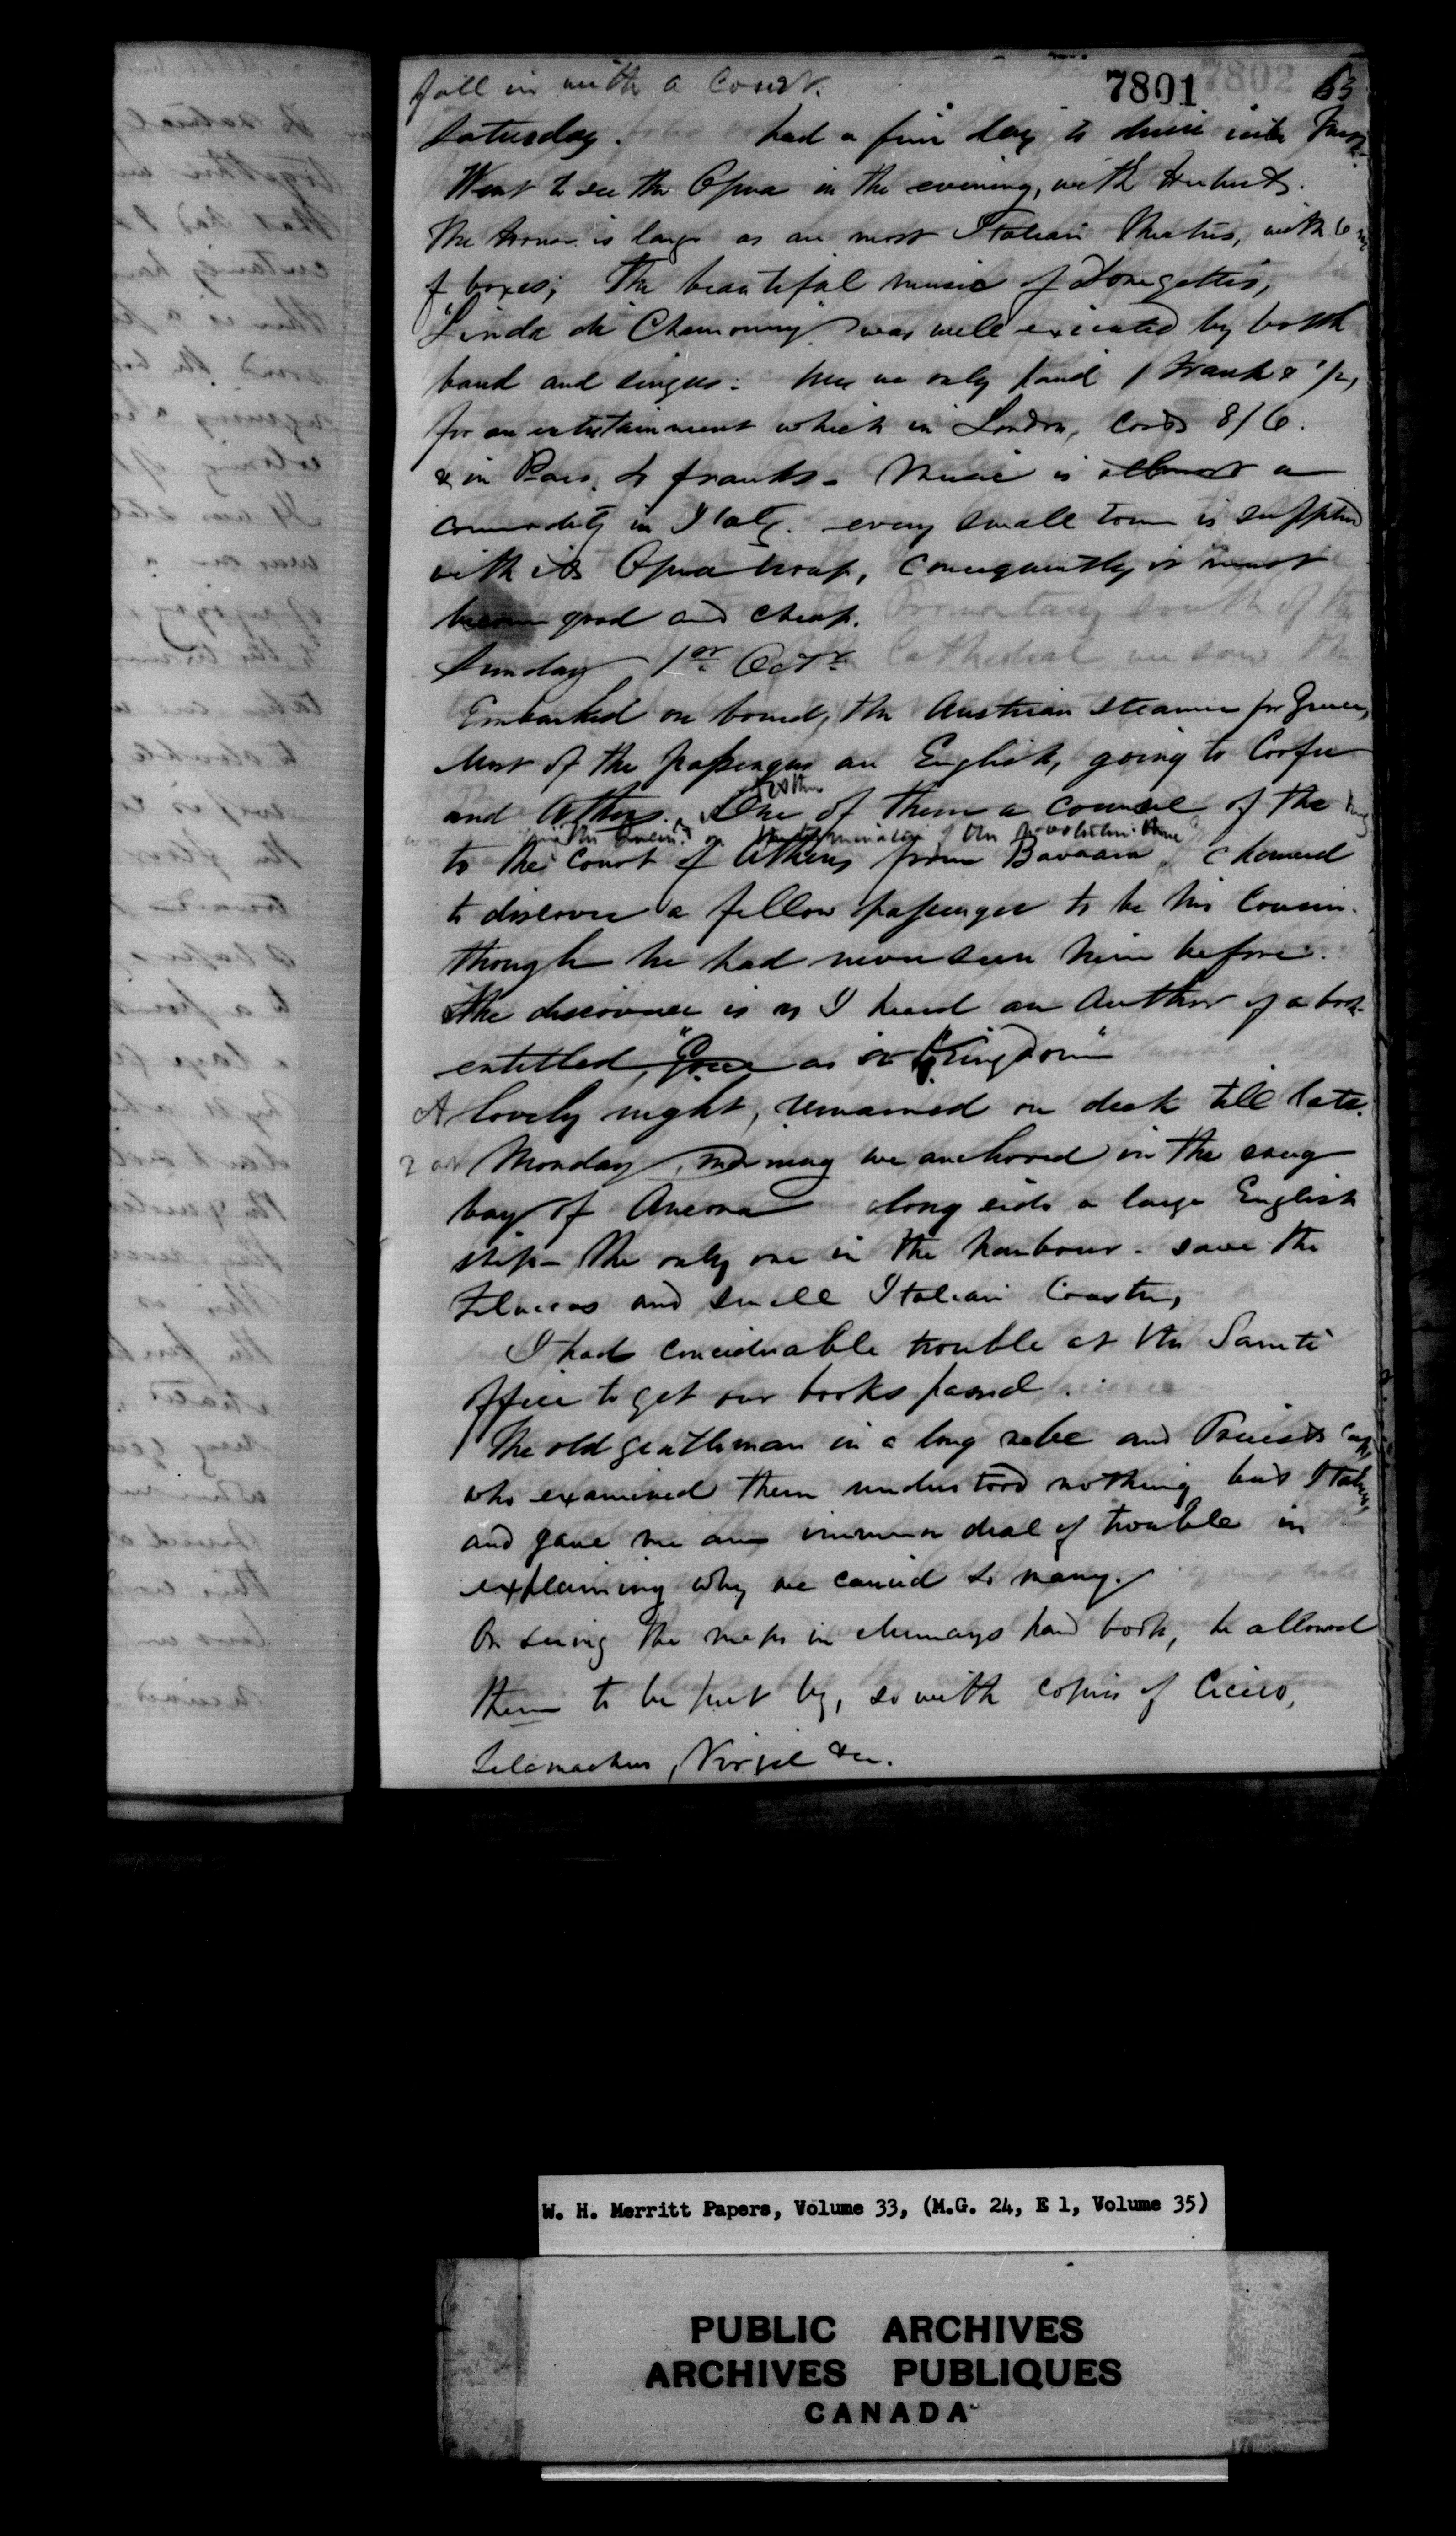 7801 7802 63
fall in with a Court.
Saturday. had a fine day to drive into
Went to see the Opera in the evening, with Huberts.
The house is large as are most Italian Theatres, with 6
of boxes; The beautiful music of Donezettis,
"Linda di Chamouny" was well executed by both
band and singers: here we only paid 1 Frank & 1/2,
for an entertainment which in London, costs 8/6.
& in Paris, franks - Music is allmost a
commodity in Italy. every small town is supplied
with its Opera troup, consequently it must
become good and cheap.
Sunday 1st Octr
Embarked on board, the Austrian steamer for Greece,
Most of the passengers are English, going to Corfu
and Athens. One of them a of the King
of the revolution
to the Court of Athens from Bavaria,
to discover a fellow passenger to be his Cousin.
though he had never seen him before.
The is as I heard an Author of a book
entitled, "Greece as a Kingdom"
A lovely night, remained on deck till late.
2nd Monday, morning we anchored in the snug
bay of Ancona along side a large English
ship - the only one in the harbour - save the
Feluccas and small Italian Coasters,
I had considerable trouble at the Sanita
office to get our books passed.
The old gentleman in a long robe and Priests cap,
who examined them understood nothing but Italian,
and gave me an immense deal of trouble in
explaining why we carried so many.
On seeing the maps in Murrays hand book, he allowed
them to be put by, so with copies of Cicero,
Telemachus, Virgil &c.
W. H. Merritt Papers, Volume 33, (M.G. 24, E 1, Volume 35)
PUBLIC ARCHIVES
ARCHIVES PUBLIQUES
CANADA